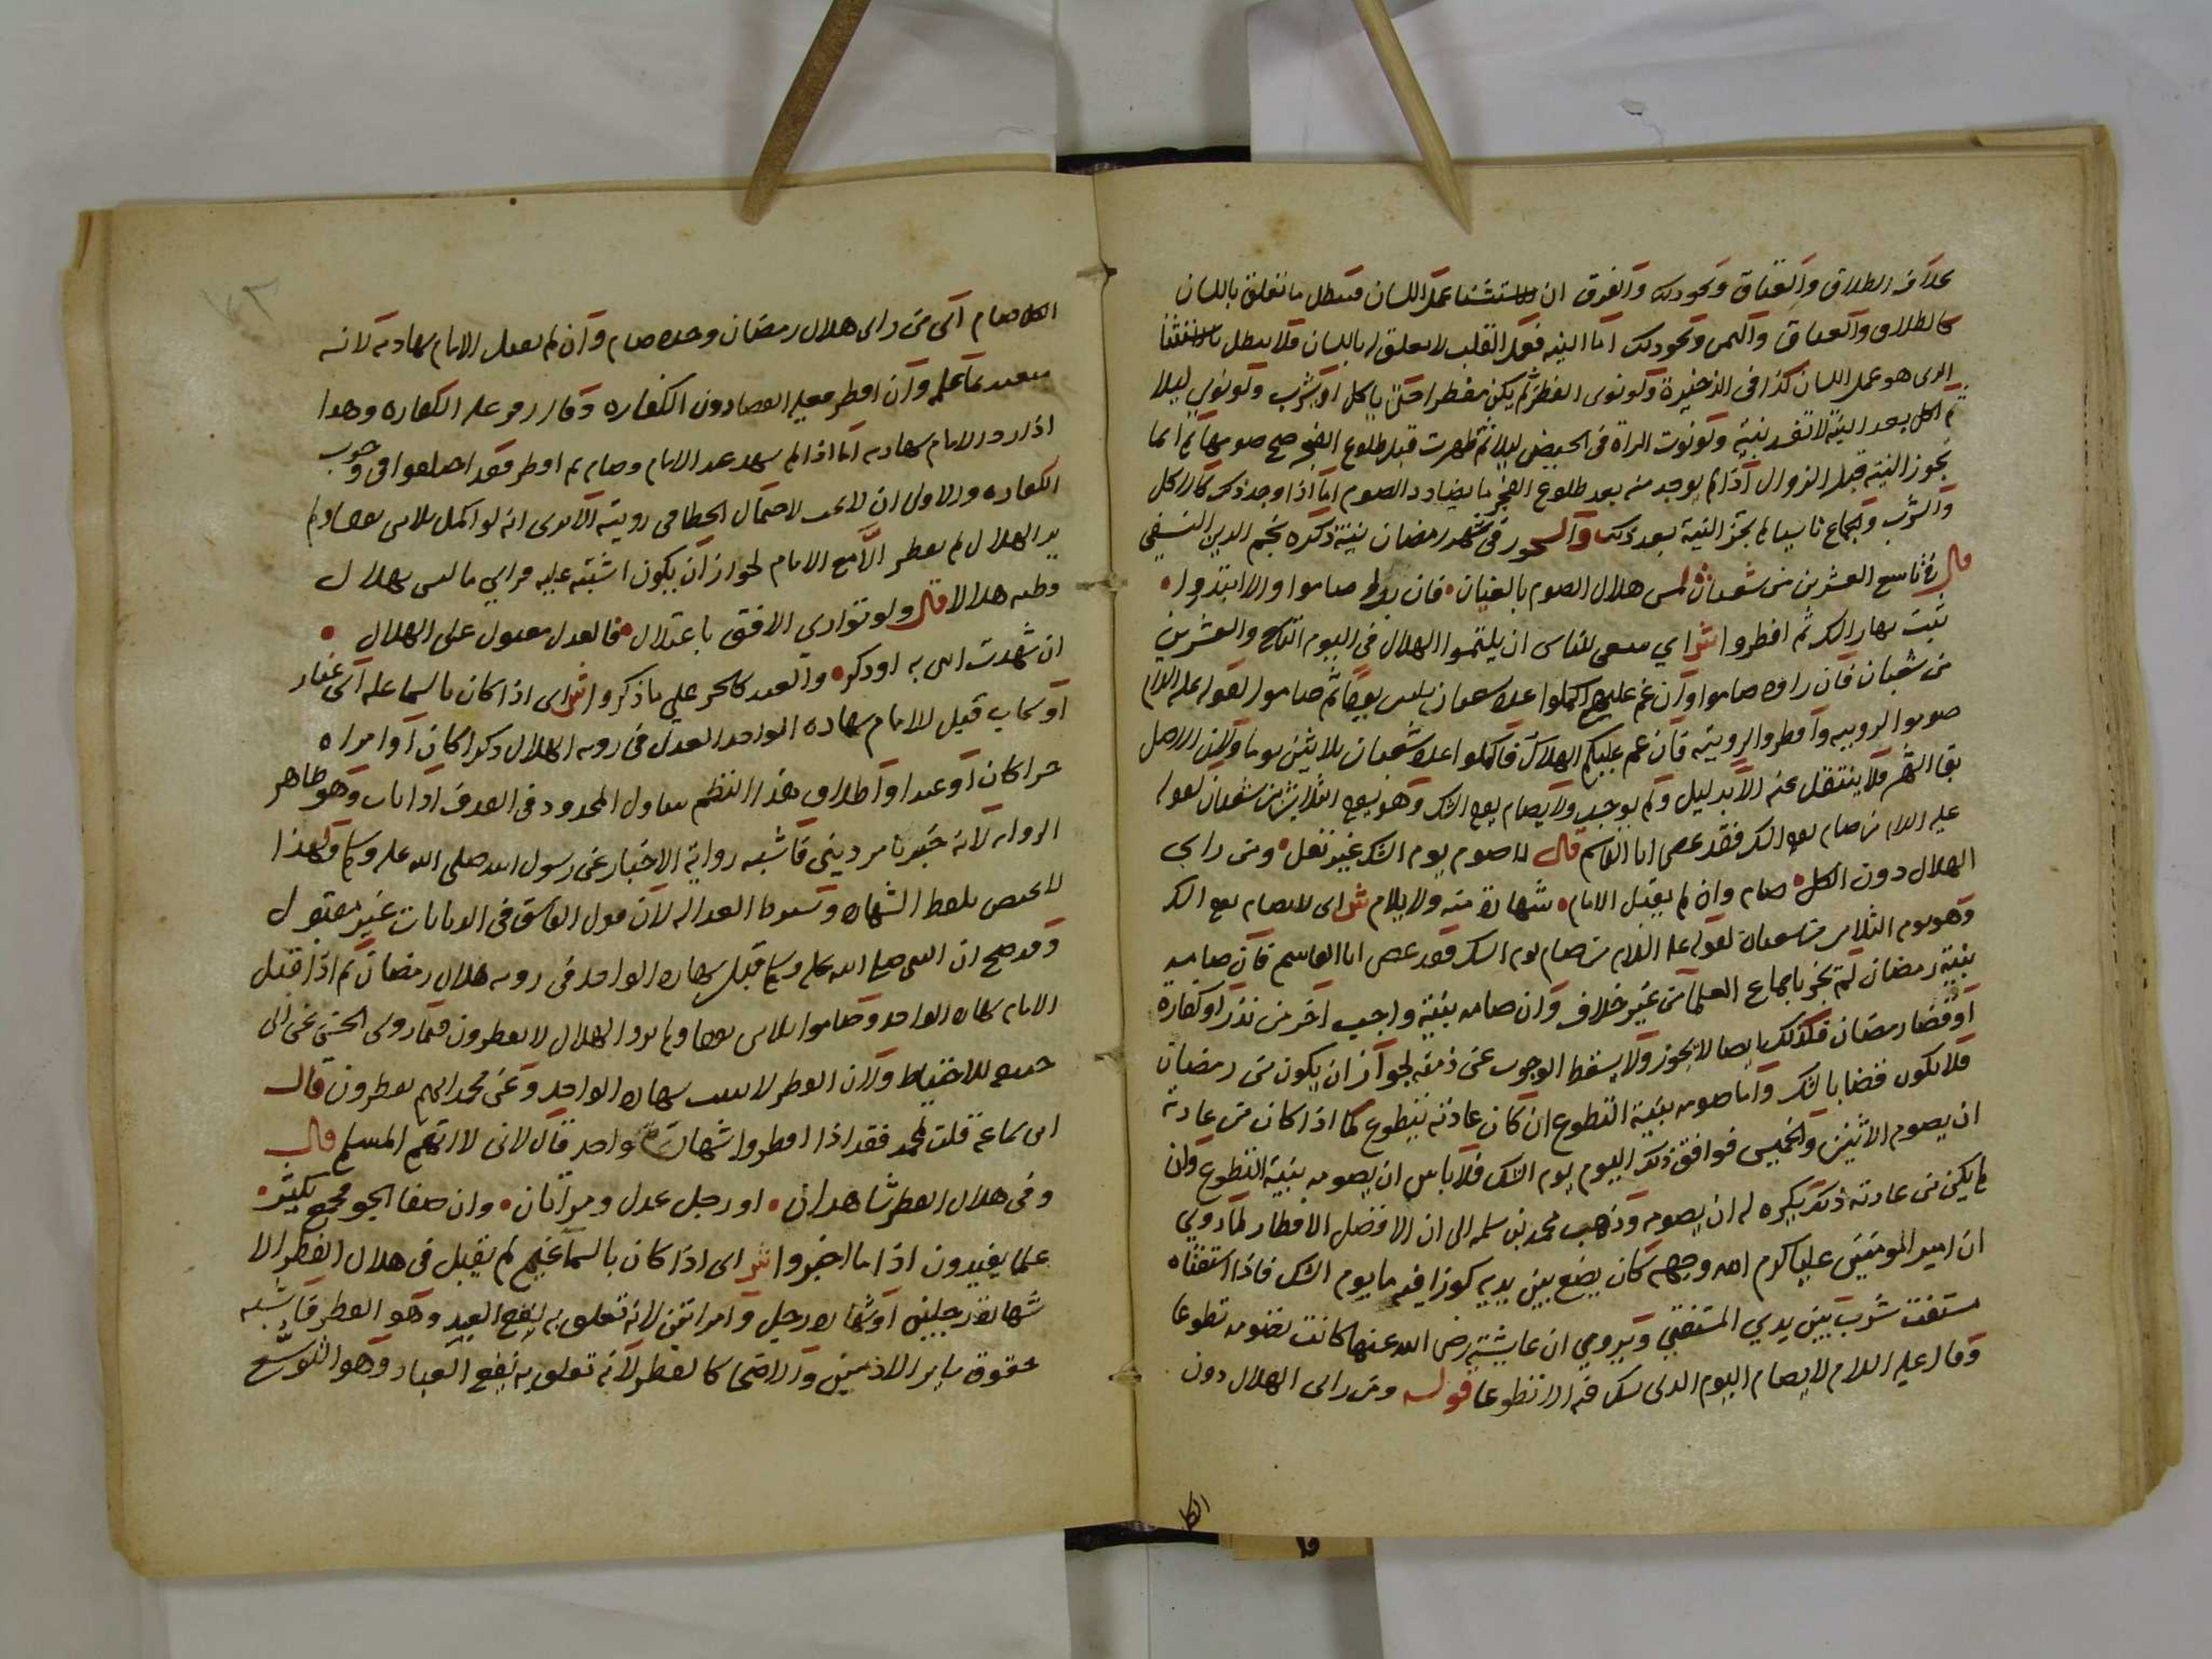 بخلاف الطلاق والعتاق ونحو ذلك والفرق ان الاستثنا عمل اللسان فيبطل ما تعلق باللسان
كالطلاق والعتاق واليمين ونحو ذلك اما النيه فعمل القلب لا تعلق لها باللسان فلا تبطل بالاستثنا
الذى هو عمل اللسان كذا فى الذخيرة ولو نوى الفطر لم يكن مفطرا حتى ياكل او يشرب ولو نوى ليلا
ثم اكل بعد النية لا تفسد نيته ولو نوت المراة فى الحيض ليلا ثم طهرت قبل طلوع الفجر صح صومها ثم انما
تجوز النية قبل الزوال اذا لم يوجد منه بعد طلوع الفجر ما يضاد الصوم اما اذا وجد ذلك كالاكل
والشرب والجماع ناسيا لم تجز النية بعد ذلك والسحور فى شهر رمضان نية ذكره نجم الدين النسفي
قال فى تاسع العشرين من شعبان لمس هلال الصوم بالعيان فان صاموا والا ابتدروا
تبت نهار الشك ثم افطروا ش اي ينبغى للناس ان يلتمسوا الهلال فى اليوم التاسع والعشرين
من شعبان فان راوه صاموا وان غم عليهم اكملوا عدة شعبان ثلثين يوما ثم صاموا لقوله عليه السلام
صوموا لرويته وافطروا لرويته فان غم عليكم الهلال فاكملوا عدة شعبان ثلاثين يوما ولان الاصل
بقا الشهر فلا ينتقل عنه الا بدليل ولم يوجد ولا يصام يوم الشك وهو يوم الثلاثين من شعبان لقوله
عليه السلام من صام يوم الشك فقد عصى ابا القاسم قال لا صوم يوم الشك غير نفل ومن راى
الهلال دون الكل صام وان لم يقبل الامام شهادة منه ولا يلام ش اى لا يصام يوم الشك
وهو يوم الثلاثين من شعبان لقوله عليه السلام من صام يوم الشك فقد عصى ابا القاسم فان صامه
بنية رمضان لم يجز باجماع العلما من غير خلاف وان صامه بنية واجب اخر من نذر او كفارة
او قضا رمضان فكذلك ايضا لا يجوز ولا يسقط الوجوب عن ذمته لجواز ان يكون من رمضان
فلا يكون قضا بالشك واما صومه بنية التطوع ان كان عادته يتطوع كما اذا كان من عادته
ان يصوم الاثنين والخميس فوافق ذلك اليوم يوم الشك فلا باس ان يصومه بنية التطوع وان
لم يكن من عادته ذلك يكره له ان يصومه وذهب محمد بن سلمه الى ان الافضل الافطار لما روي
ان امير المومنين عليا كرم الله وجهه كان يضع بين يديه كوزا فيه ما يوم الشك فاذا استفتاه
مستفت شرب بين يدي المستفتي ويروي ان عايشة رضى الله عنها كانت تصومه تطوعا
وقال عليه السلام لا يصام اليوم الذى يشك فيه الا تطوعا قوله ومن راى الهلال دون
الكل
الكل صام اى من راى هلال رمضان وحده صام وان لم يقبل الامام شهادته لانه
متعبد بما علمه وان افطر فعليه القضا دون الكفاره وقال زفر عليه الكفاره وهذا
اذا رد الامام شهادته اما اذا لم يشهد عند الامام وصام ثم افطر فقد اختلفوا فى وجوب
الكفاره والاولى ان لا تجب لاحتمال الخطا فى رويته الا ترى انه لو اكمل ثلاثين يوما ولم
ير الهلال لم يفطر الا مع الامام لجواز ان يكون اشتبه عليه فراي ما ليس بهلال
وظنه هلالا قال ولو توارى الافق باعتلال فالعدل مقبول على الهلال
ان شهدت انثى به او ذكر والعبد كالحر على ما ذكروا ش اى اذا كان بالسما علة اى غبار
او سحاب قبل الامام شهادة الواحد العدل فى رويه الهلال ذكرا كان او امراه
حرا كان او عبدا واطلاق هذا النظم يتناول المحدود فى القذف اذا تاب وهو ظاهر
الروايه لانه خبر بامر ديني فاشبه رواية الاخبار عن رسول الله صلى الله عليه وسلم ولهذا
لا يختص بلفظ الشهاده وتشترط العدالة لان قول الفاسق فى الديانات غير مقبول
وقد صح ان النبى صلى الله عليه وسلم قبل شهادة الواحد فى رويه هلال رمضان ثم اذا قبل
الامام شهادة الواحد وصاموا ثلاثين يوما ولم يروا الهلال لا يفطرون فيما روى الحسن عن ابى
حنيفه للاحتياط ولان الفطر لا يثبت بشهادة الواحد وعن محمد انهم يفطرون قال
ابن سماعه قلت لمحمد فقد اذا افطروا بشهادة واحد قال لانى لا اتهم المسلم قال
وفى هلال الفطر شاهدان او رجل عدل ومراتان وان صفا الجو فجمع يكثر
علما يفيدون اذا ما اخبروا ش اى اذا كان بالسما غيم لم يقبل فى هلال الفطر الا
شهادة رجلين او شهادة رجل وامراتين لانه تعلق به نفع العبد وهو الفطر فاشبه
حقوق ساير الادميين والاضحا كالفطر لانه تعلق به نفع العباد وهو التوسع